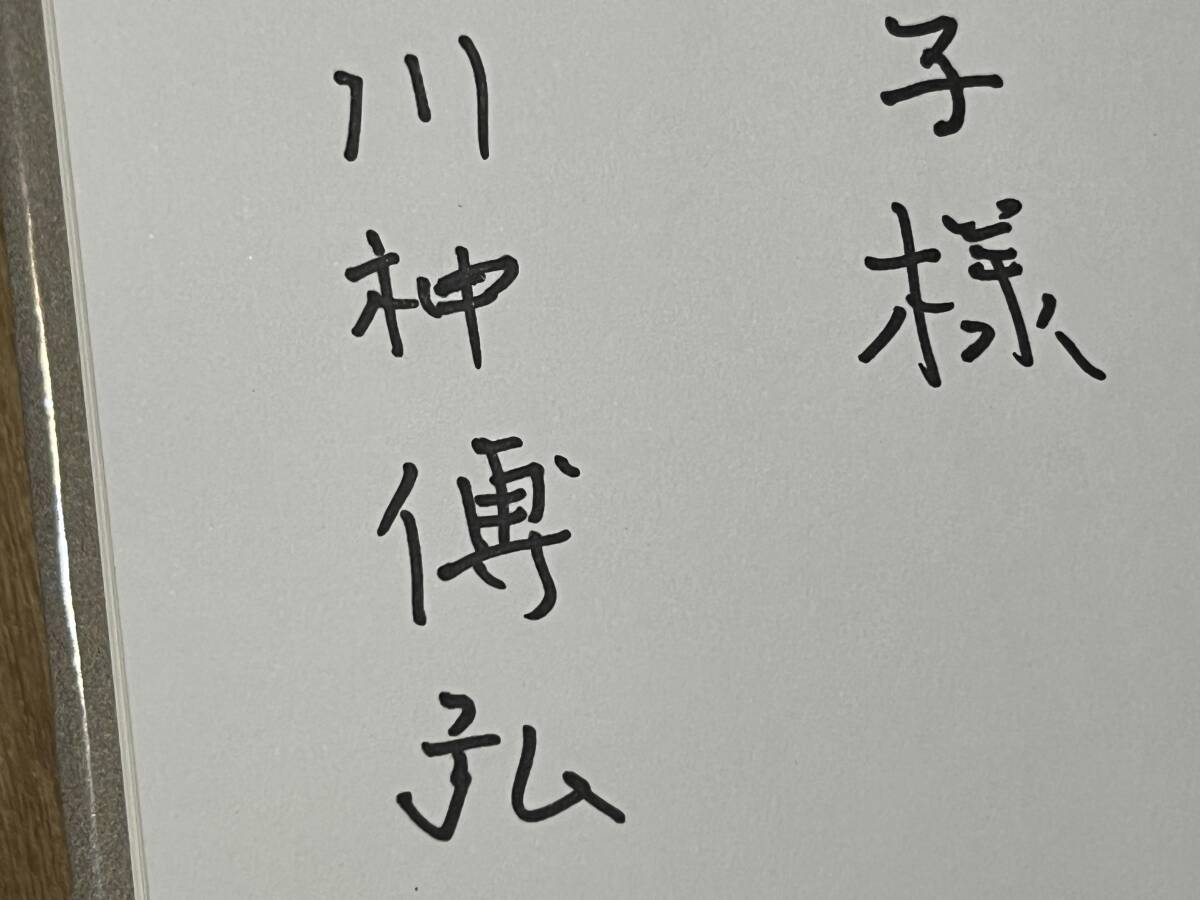 子様
川神傅弘